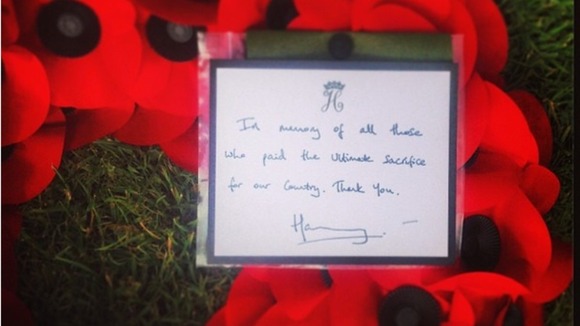 H
In memory of all those
who paid the Ultimate Sacrifice
for our Country. Thank You.
Harry.